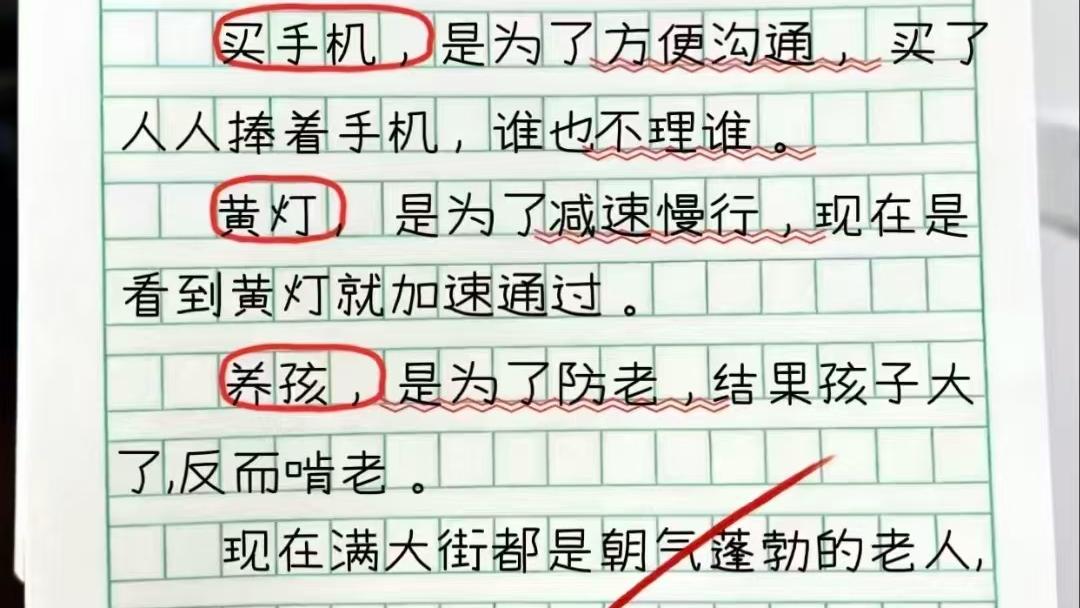 买手机，是为了方便沟通，买了
人人捧着手机，谁也不理谁。
黄灯，是为了减速慢行，现在是
看到黄灯就加速通过。
养孩，是为了防老，结果孩子大
了,反而啃老。
现在满大街都是朝气蓬勃的老人,